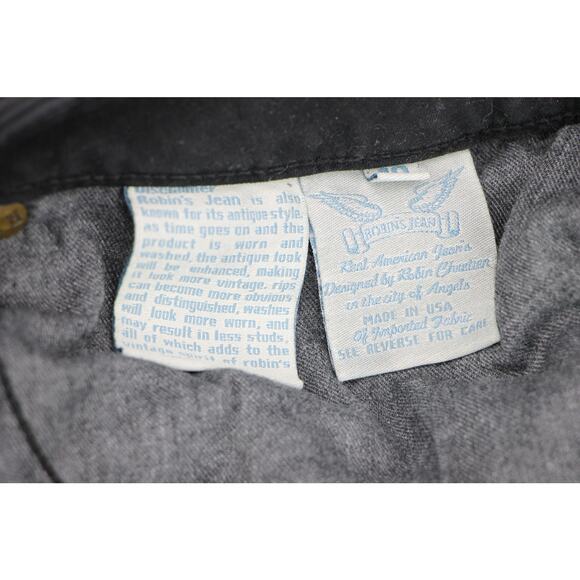 Disclaimer
Robin's Jean is also
known for its antique style.
as time goes on and the
product is worn and
washed, the antique look
will be enhanced, making
it look more vintage. rips
can become more obvious
and distinguished, washes
will look more worn, and
may result in less studs.
all of which adds to the
vintage spirit of robin's
ROBIN'S JEAN
Real American Jean's
Designed by Robin Chretien
in the city of Angels
MADE IN USA
Of Imported Fabric
SEE REVERSE FOR CARE